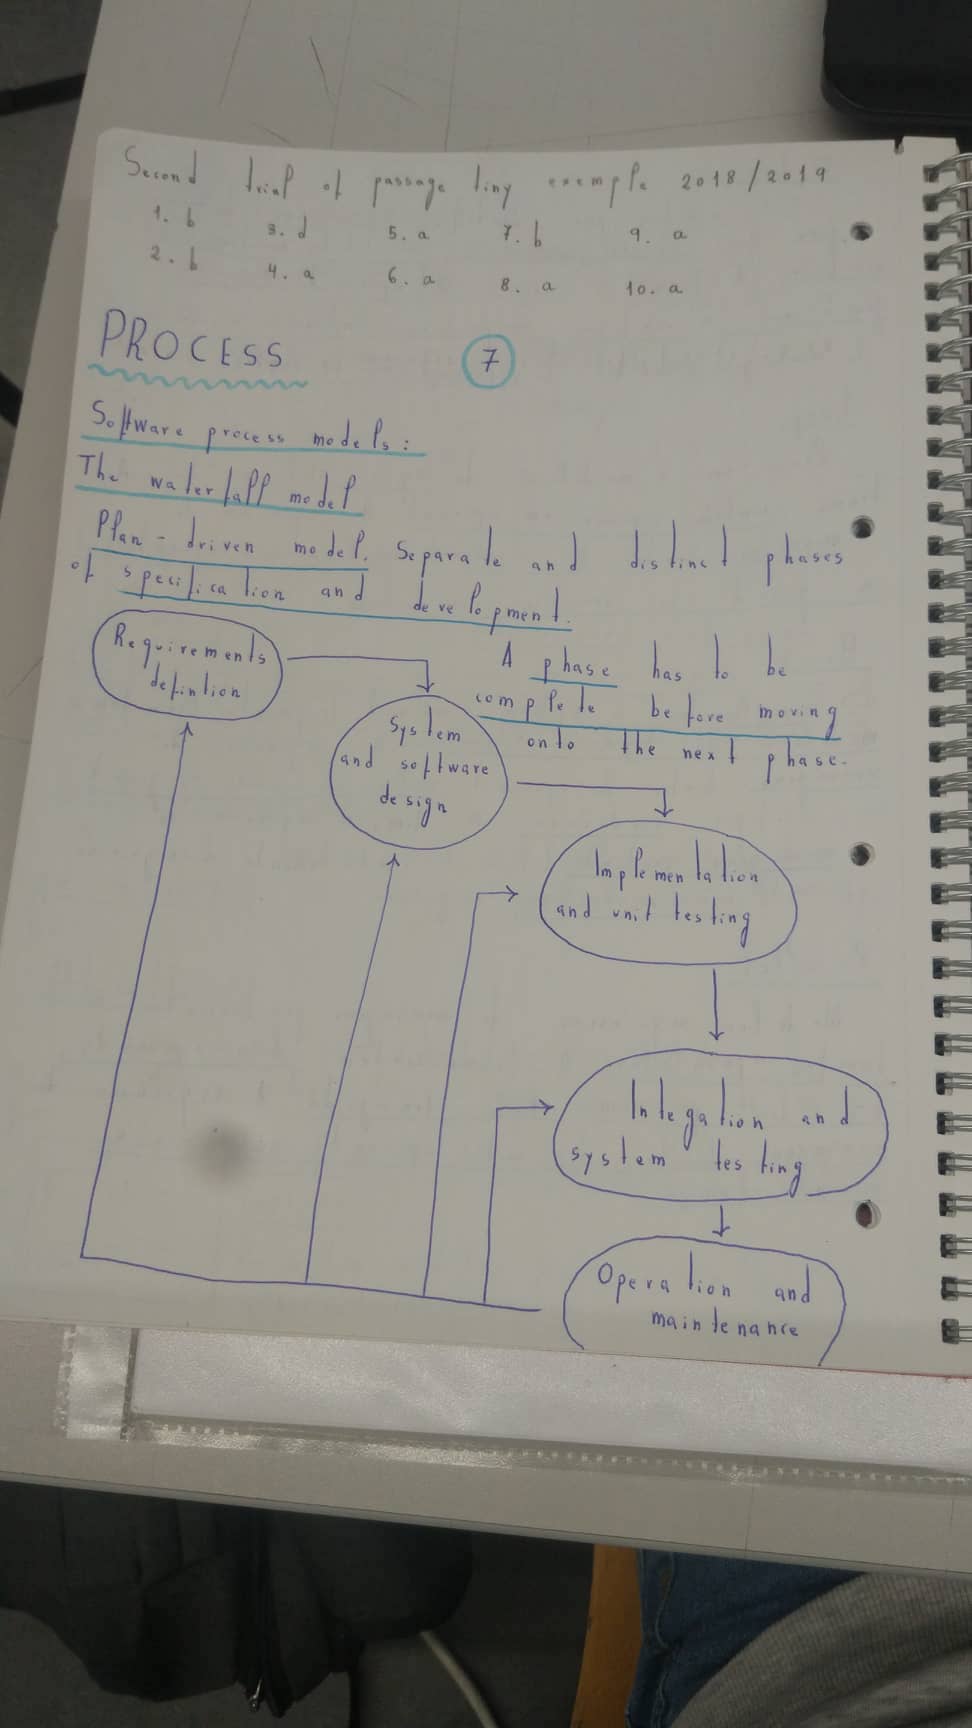 Second trial of passage tiny exemple 2018/2019
1. b 3. d 5. a 7. b 9. a
2. b 4. a 6. a 8. a 10. a
PROCESS 7
Software process models:
The waterfall model
Plan-driven model. Separate and distinct phases
of specification and development.
Requirements
defintion
A phase has to be
complete before moving
onto the next phase.
System
and software
design
Implementation
and unit testing
Integation and
system testing
Operation and
maintenance